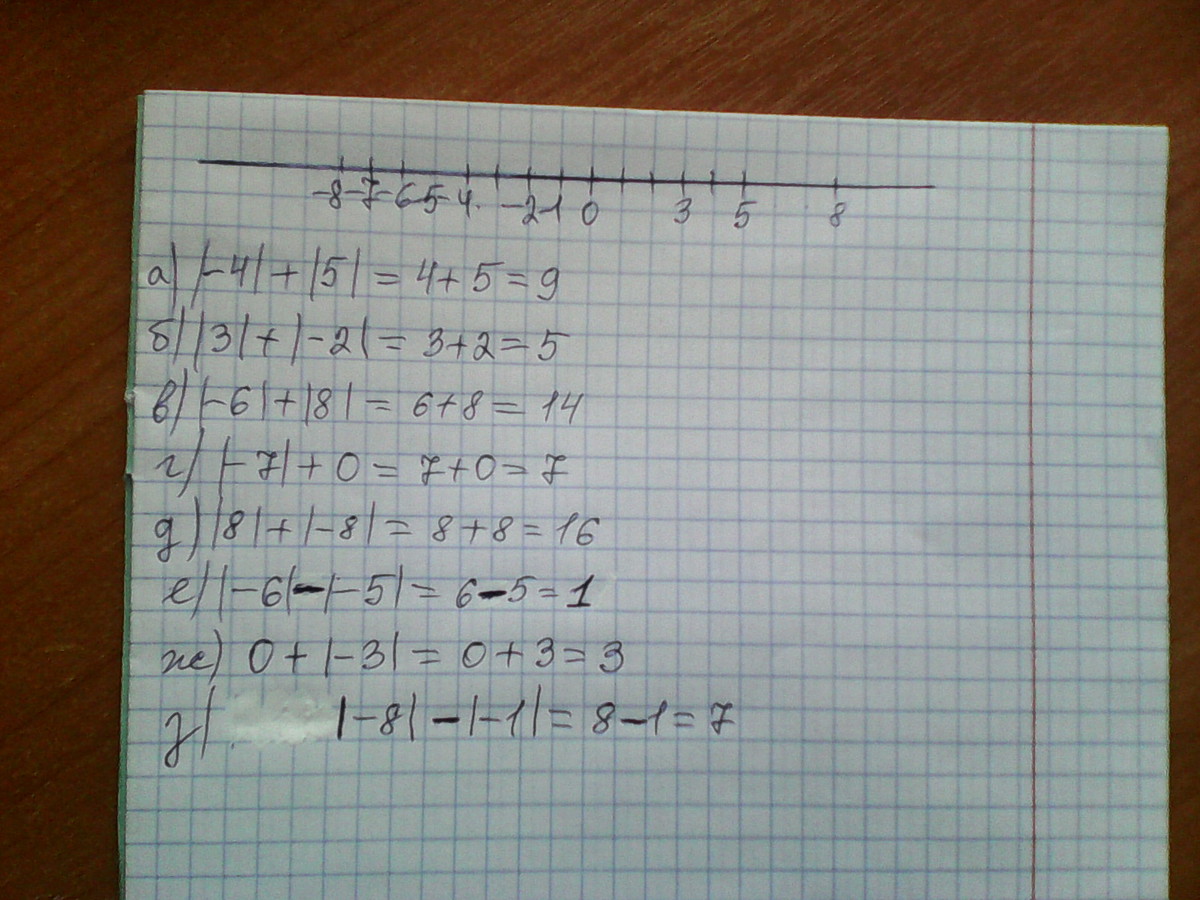 -8 -7 -6 -5 -4 -2 -1 0 3 5 8
а) |-4| + |5| = 4 + 5 = 9
б) |3| + |-2| = 3 + 2 = 5
в) |-6| + |8| = 6 + 8 = 14
г) |-7| + 0 = 7 + 0 = 7
д) |8| + |-8| = 8 + 8 = 16
е) |-6| - |-5| = 6 - 5 = 1
ж) 0 + |-3| = 0 + 3 = 3
з) |-8| - |-1| = 8 - 1 = 7